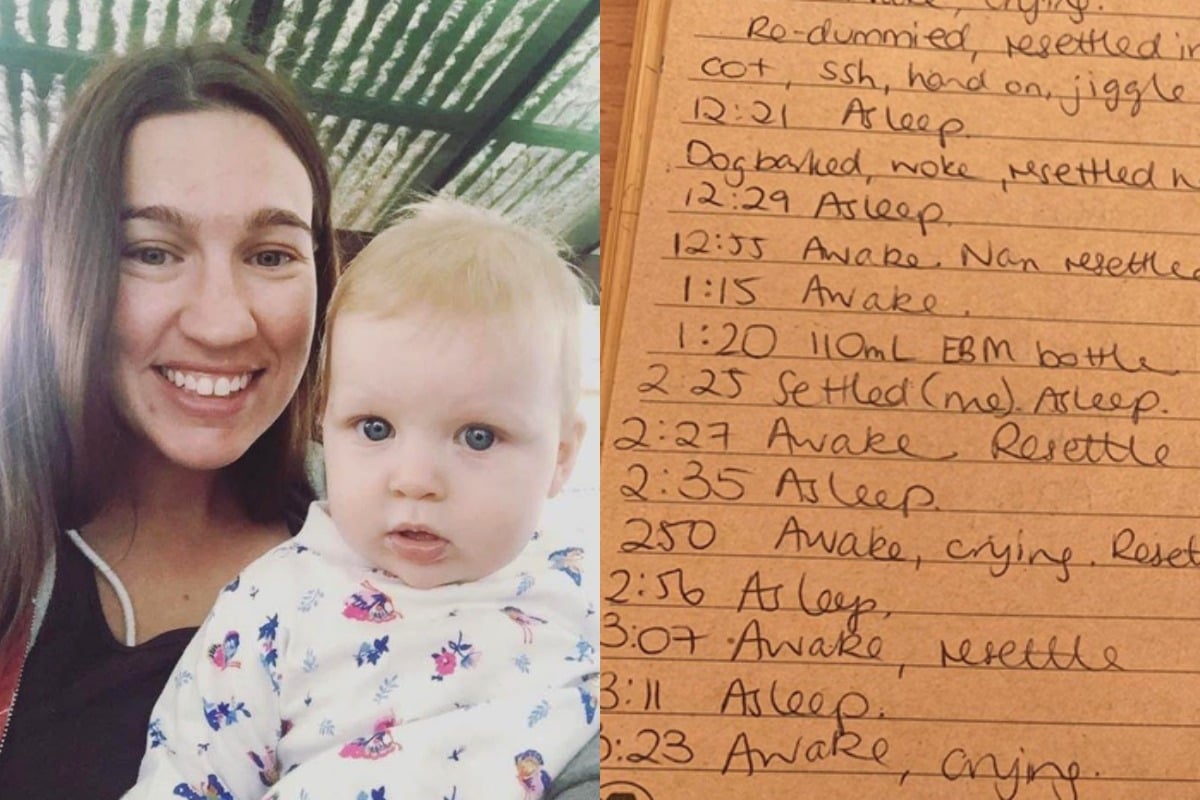 crying.
Re-dummied, resettled in
cot, ssh, hand on, jiggle
12:21 Asleep.
Dog barked, woke, resettled
12:29 Asleep.
12:55 Awake. Nan resettled
1:15 Awake.
1:20 110mL EBM bottle
2 25 Settled (me). Asleep.
2:27 Awake Resettle
2:35 Asleep.
250 Awake, crying. Reset
2:56 Asleep.
3:07 Awake, resettle
3:11 Asleep.
:23 Awake, crying.